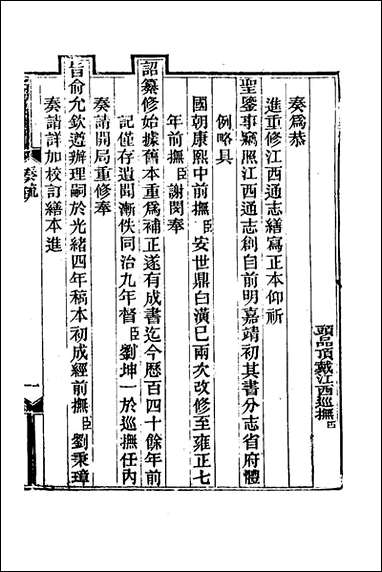 頭品頂戴江西巡撫臣
奏為恭
進重修江西通志繕寫正本仰祈
聖鑒事竊照江西通志創自前明嘉靖初其書分志省府體
例略具
國朝康熙中前撫臣安世鼎白潢巳兩次改修至雍正七
年前撫臣謝閔奉
詔纂修始據舊本重為補正遂有成書迄今歷百四十餘年前
記僅存遺聞漸佚同治九年督臣劉坤一於巡撫任內
奏請開局重修奉
旨俞允欽遵辦理嗣於光緒四年稿本初成經前撫臣劉秉璋
奏請詳加校訂繕本進
奏疏
一